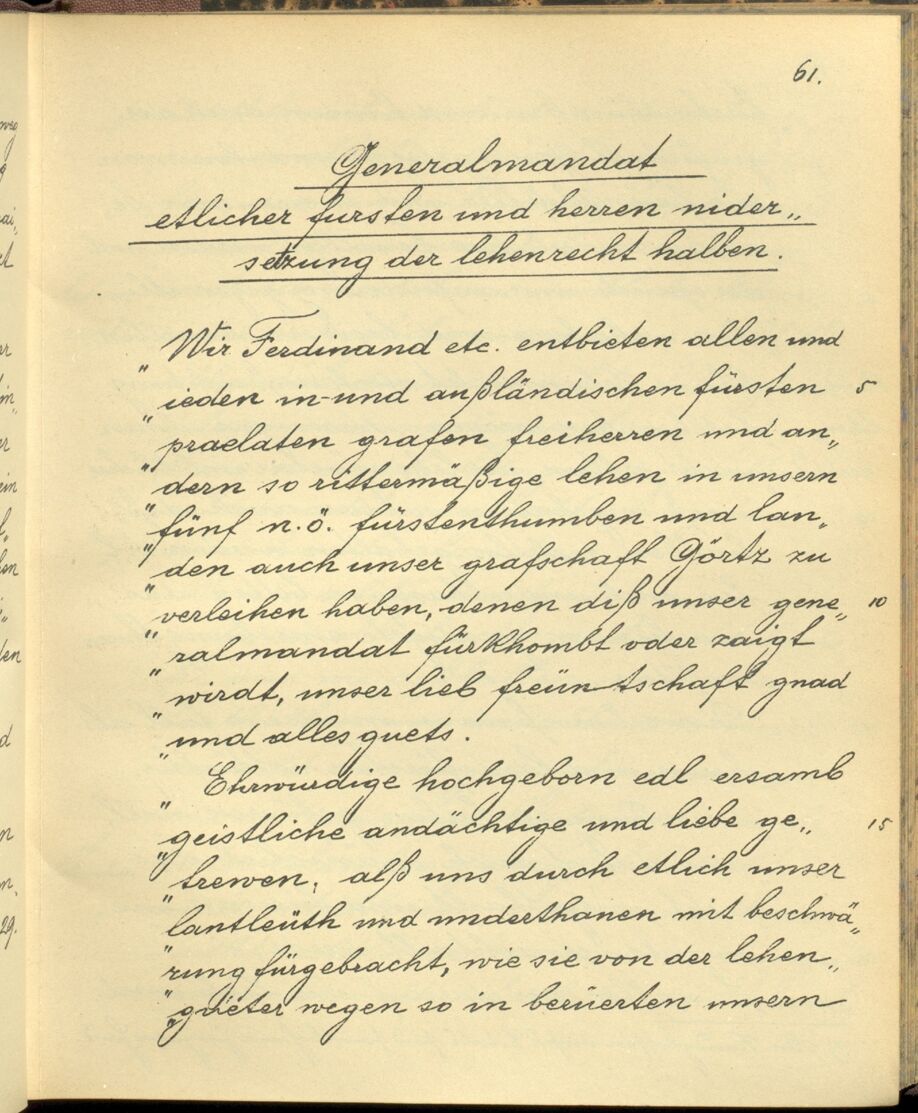 61.
Generalmandat
etlicher fursten und herren nider„
setzung der lehenrecht halben.
Wir Ferdinand etc. entbieten allen und
" ieden in- und außländischen fürsten 5
" praelaten grafen freiherren und an„
" dern so rittermäßige lehen in unsern
" fünf n. ö. fürstenthumben und lan„
" den auch unser grafschaft Görtz zu
" verleihen haben, denen diß unser gene„ 10
" ralmandat fürkhombt oder zaigt
" wirdt, unser lieb freüntschaft gnad
" und alles guets.
" Ehrwürdige hochgeborn edl ersamb
" geistliche andächtige und liebe ge„ 15
" trewen, alß uns durch etlich unser
" lantleüth und underthanen mit beschwä„
" rung fürgebracht, wie sie von der lehen„
" güeter wegen so in berüerten unsern